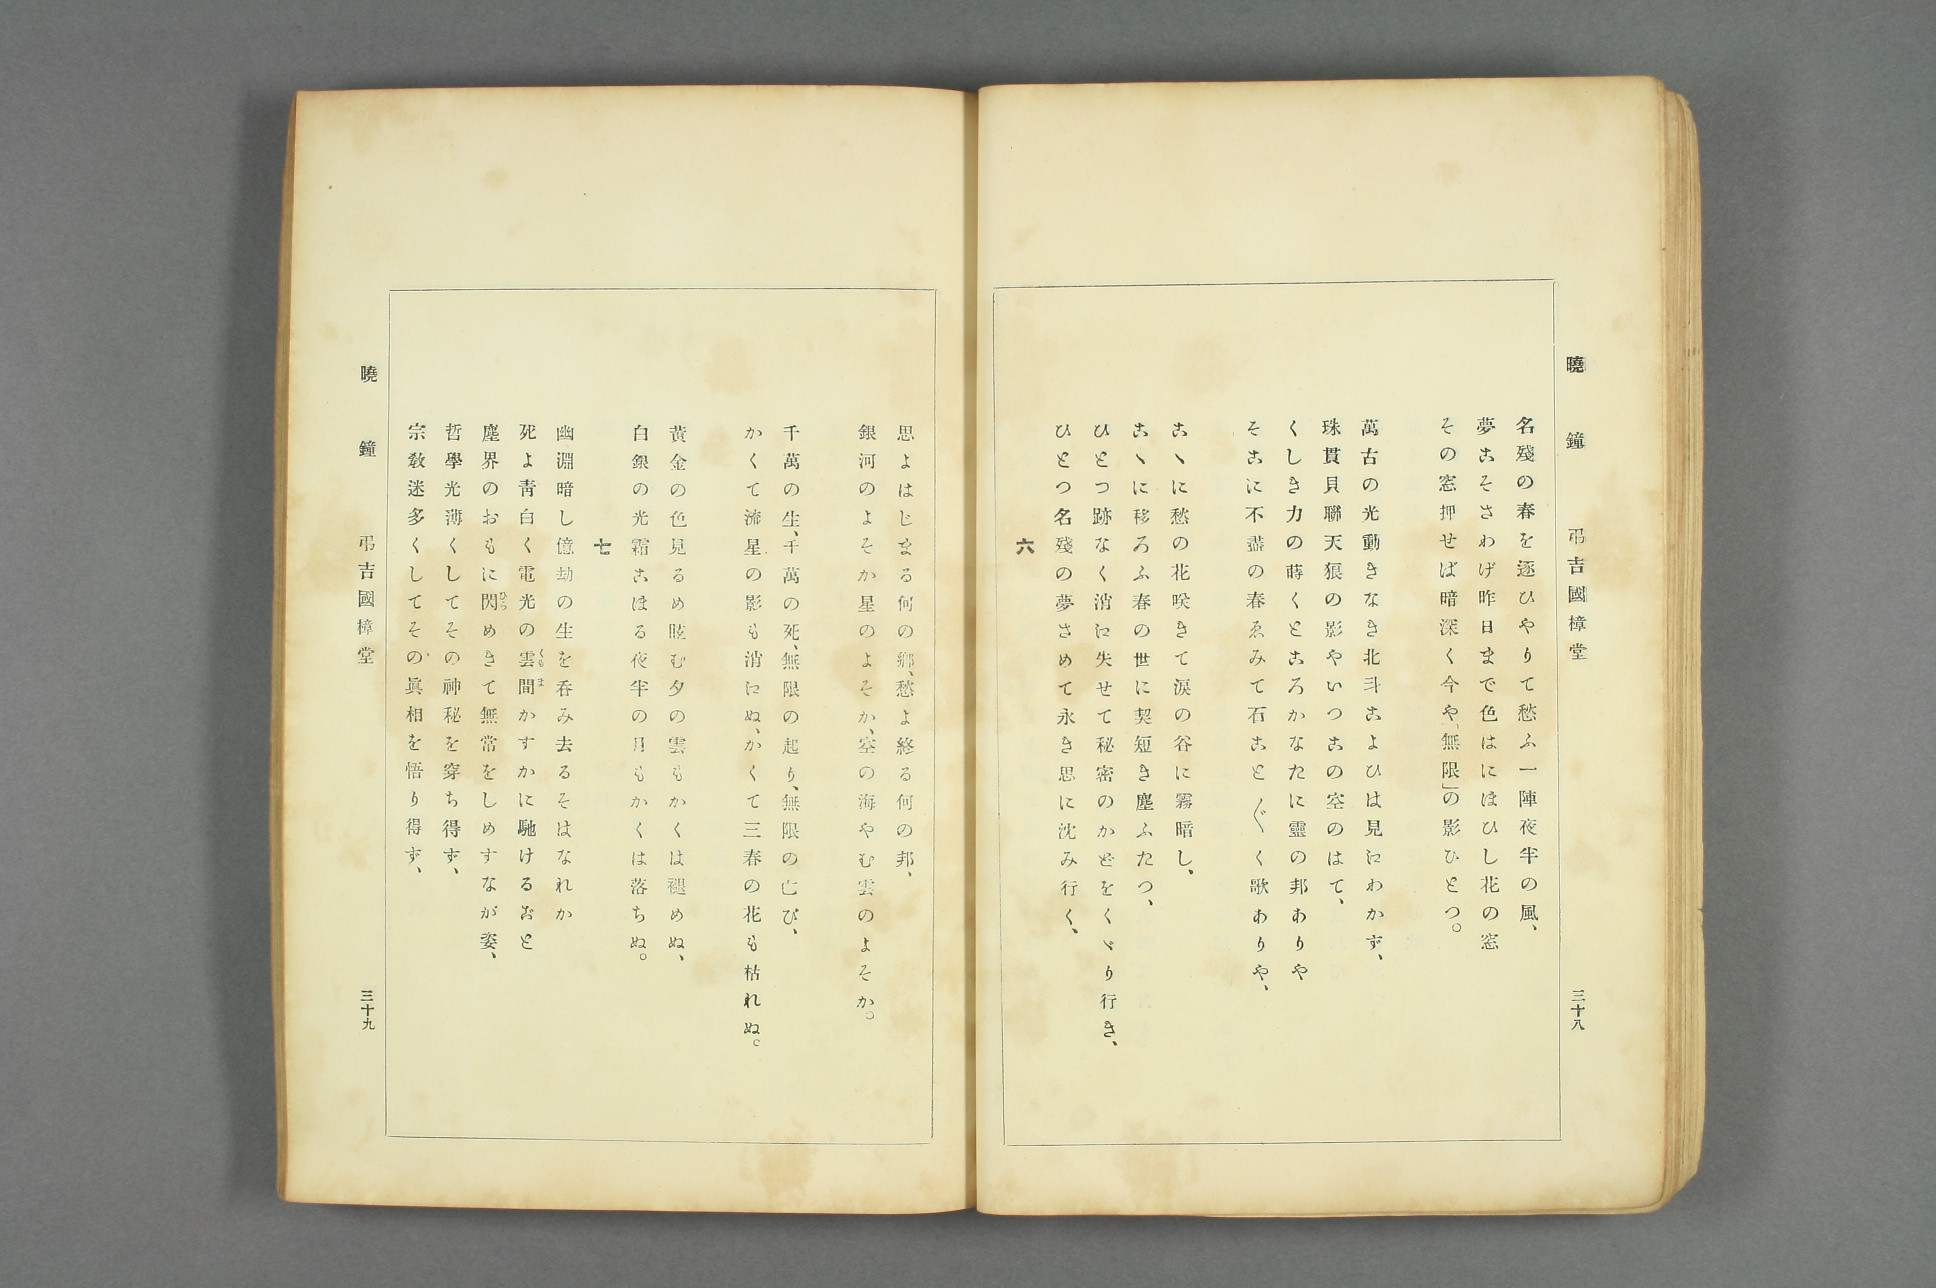 曉鐘 弔吉國樟堂 三十八
名殘の春を逐ひやりて愁ふ一陣夜半の風、
夢こそさわげ昨日まで色はにほひし花の窓
その窓押せば暗深く今や「無限」の影ひとつ。
萬古の光動きなき北斗こよひは見えわかず、
珠貫貝聯天狼の影やいつこの空のはて、
くしき力の蒔くところかなたに靈の邦ありや
そこに不盡の春ゑみて石こと〴〵く歌ありや、
こヽに愁の花咲きて涙の谷に霧暗し、
こヽに移ろふ春の世に契短き塵ふたつ、
ひとつ跡なく消え失せて秘密のかどをくヾり行き、
ひとつ名殘の夢さめて永き思に沈み行く、
六
思よはじまる何の郷、愁よ終る何の邦、
銀河のよそか星のよそか、空の海やむ雲のよそか。
千萬の生、千萬の死、無限の起り、無限の亡び、
かくて流星の影も消えぬ、かくて三春の花も枯れぬ。
黄金の色見るめ眩む夕の雲もかくは褪めぬ、
白銀の光霜こほる夜半の月もかくは落ちぬ。
七
幽淵暗し億劫の生を呑み去るそはなれか
死よ青白く電光の雲間かすかに馳けるおと
塵界のおもに閃めきて無常をしめすなが姿、
哲學光薄くしてその神秘を穿ち得ず、
宗教迷多くしてその眞相を悟り得ず、
曉鐘 弔吉國樟堂 三十九